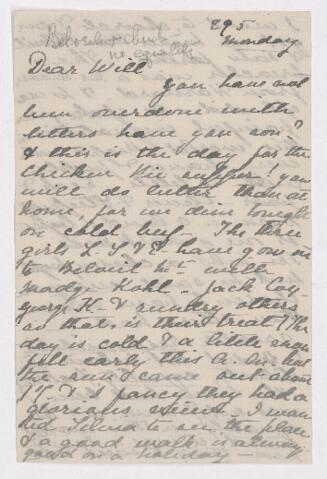 295
Monday
Dear Will
You have not
been overdone with
letters have you son?
& this is the day for the
Chicken Pie supper! you
will do better than at
home, for we dine tonight
on cold beef. The three
girls L. S. & E. have gone on
to Mt. with
Madge Kohl. Jack Coy
George K. & sundry others
so that is their treat. The
day is cold & a little snow
fell early this a. m. but
the sun came out about
& I fancy they had a
glorious view. I wan
ted to see the place
& a good walk is always
good on a holiday —